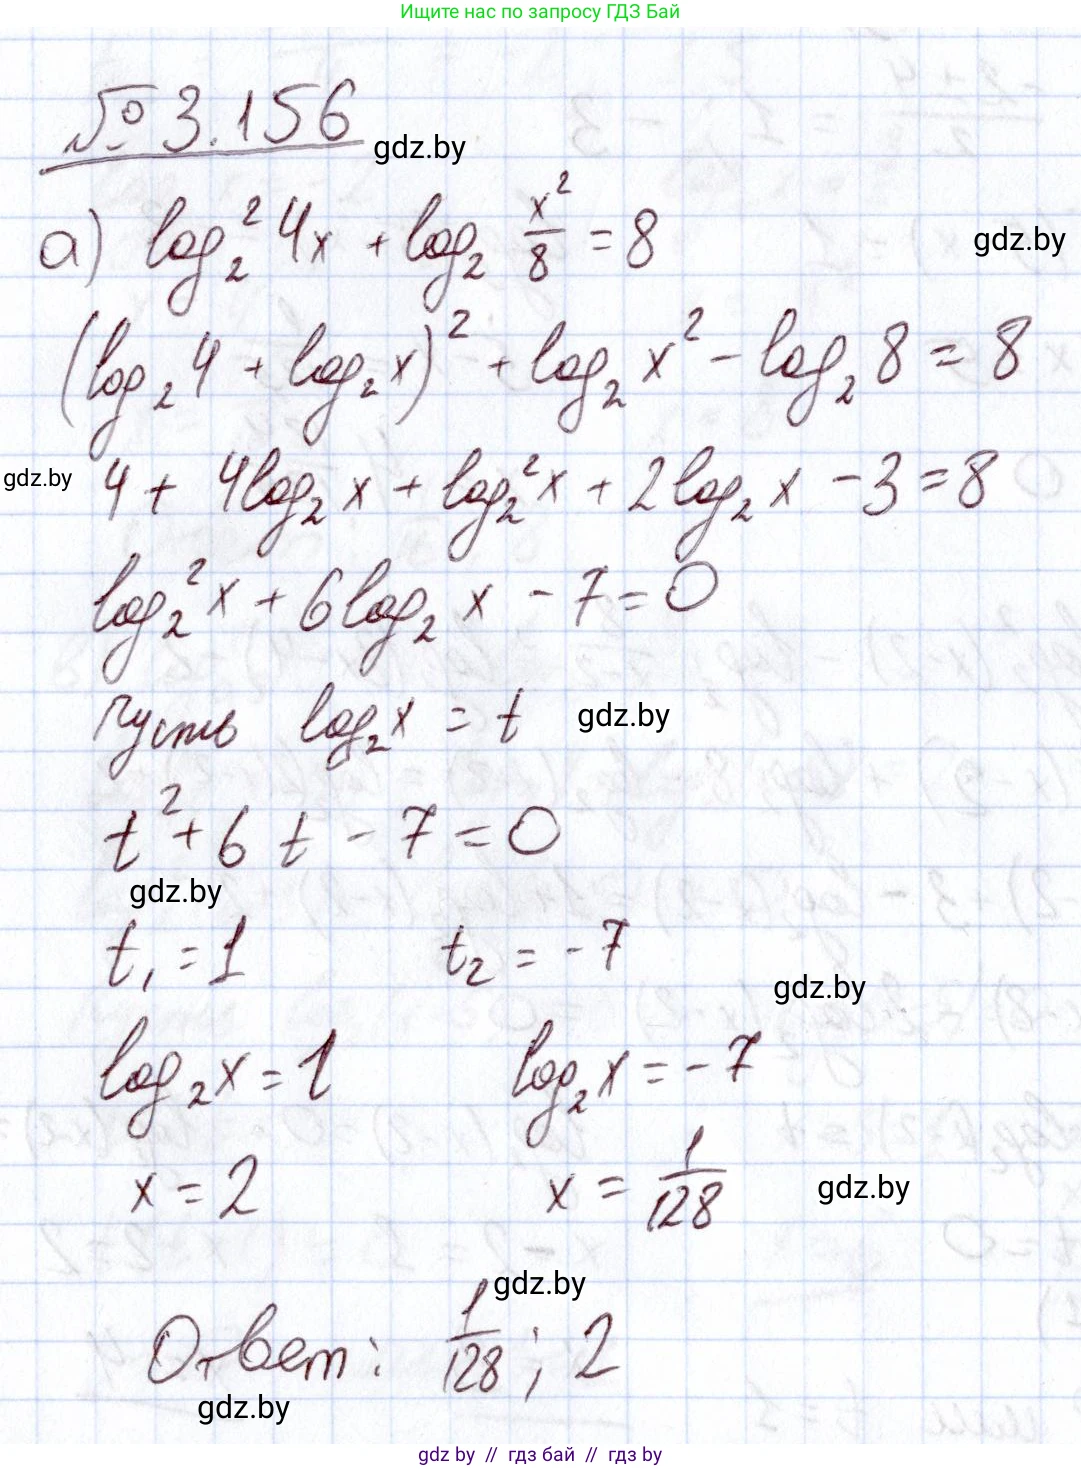 Ищите нас по запросу ГДЗ Бай
№ 3.156
gdz.by
а) log₂² 4x + log₂ x²/8 = 8
gdz.by
(log₂ 4 + log₂ x)² + log₂ x² - log₂ 8 = 8
gdz.by
4 + 4log₂ x + log₂² x + 2log₂ x - 3 = 8
log₂² x + 6log₂ x - 7 = 0
Пусть log₂ x = t
gdz.by
t² + 6t - 7 = 0
gdz.by
t₁ = 1 t₂ = -7
gdz.by
log₂ x = 1 log₂ x = -7
x = 2 x = 1/128
gdz.by
gdz.by
Ответ: 1/128; 2
gdz.by
gdz by // гдз бай // гдз by